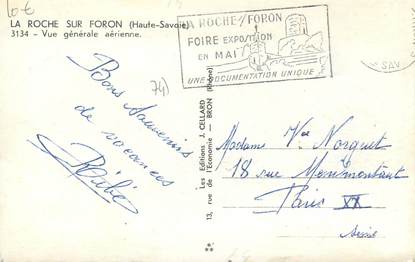 LA ROCHE SUR FORON (Haute-Savoie)
3134 - Vue générale aérienne.
LA ROCHE S/ FORON
FOIRE EXPOSITION
EN MAI
UNE DOCUMENTATION UNIQUE
SAV
74)
Bons Souvenirs
de vacances
Les Editions J. CELLARD
13, rue de l'Economie — BRON (Rhône)
Madame Vve Norguet
18 rue Ménilmontant
Paris XX
Seine